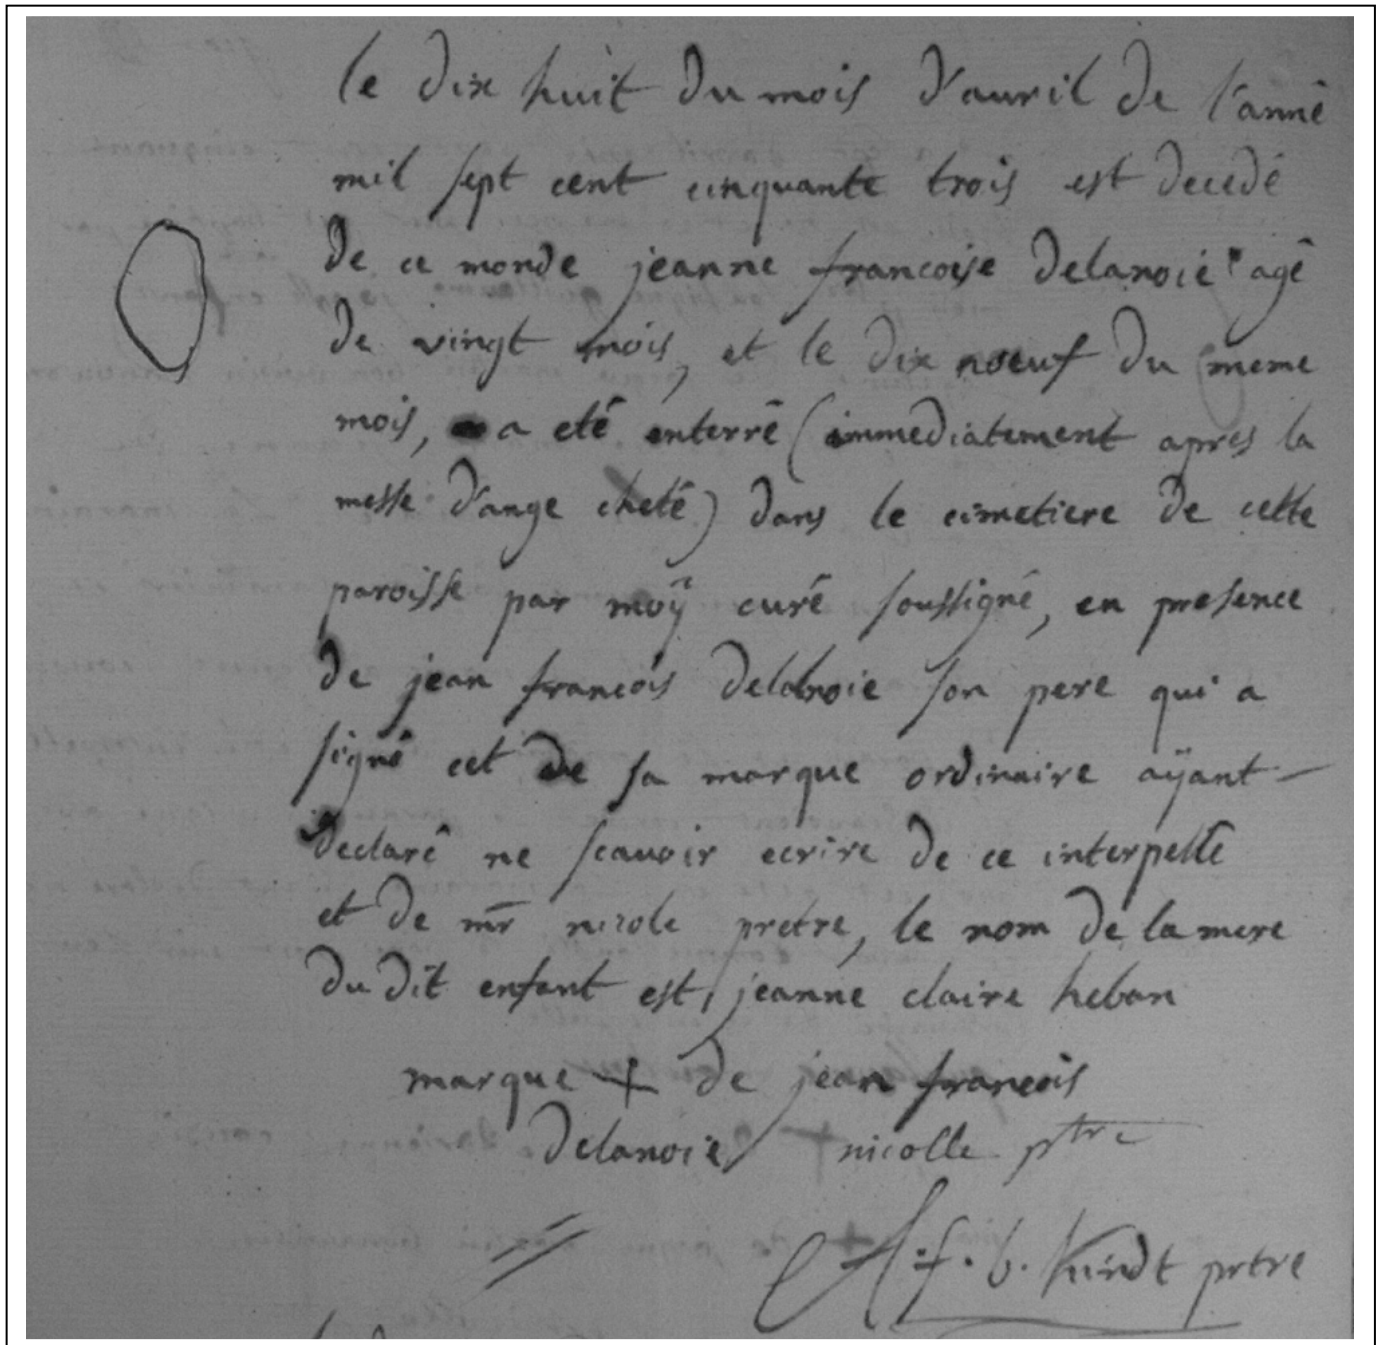 le dix huit du mois d'auril de l'annê
mil sept cent cinquante trois est decedé
de ce monde jeanne francoise delanoié agê
de vingt mois, et le dix noeuf du meme
mois, a eté enterrê (immediatement apres la
messe d'ange chetê) dans le cimetiere de cette
paroisse par moÿ curé soussigné, en presence
de jean francois delanoie son pere qui a
signé cet de sa marque ordinaire aÿant
declarê ne scauoir ecrire de ce interpellé
et de mr nicole pretre, le nom de la mere
du dit enfant est, jeanne claire heban
marque + de jean francois
delanoie nicolle ptre
f. b. kindt pretre